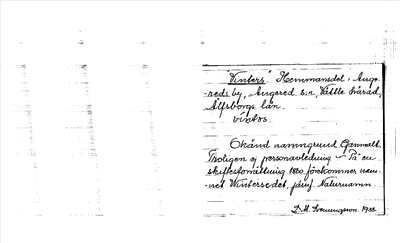 "Vinters" Hemmansdel i Ange-
reds by, Angered s:n, Vättle härad,
Älfsborgs län.
Okänd namngrund Gammalt.
Troligen ej personavledning – På en
skiftesförrättning 1820 förekommer nam-
net Wintersedet, jämf. Naturnamn
D. M. 1922